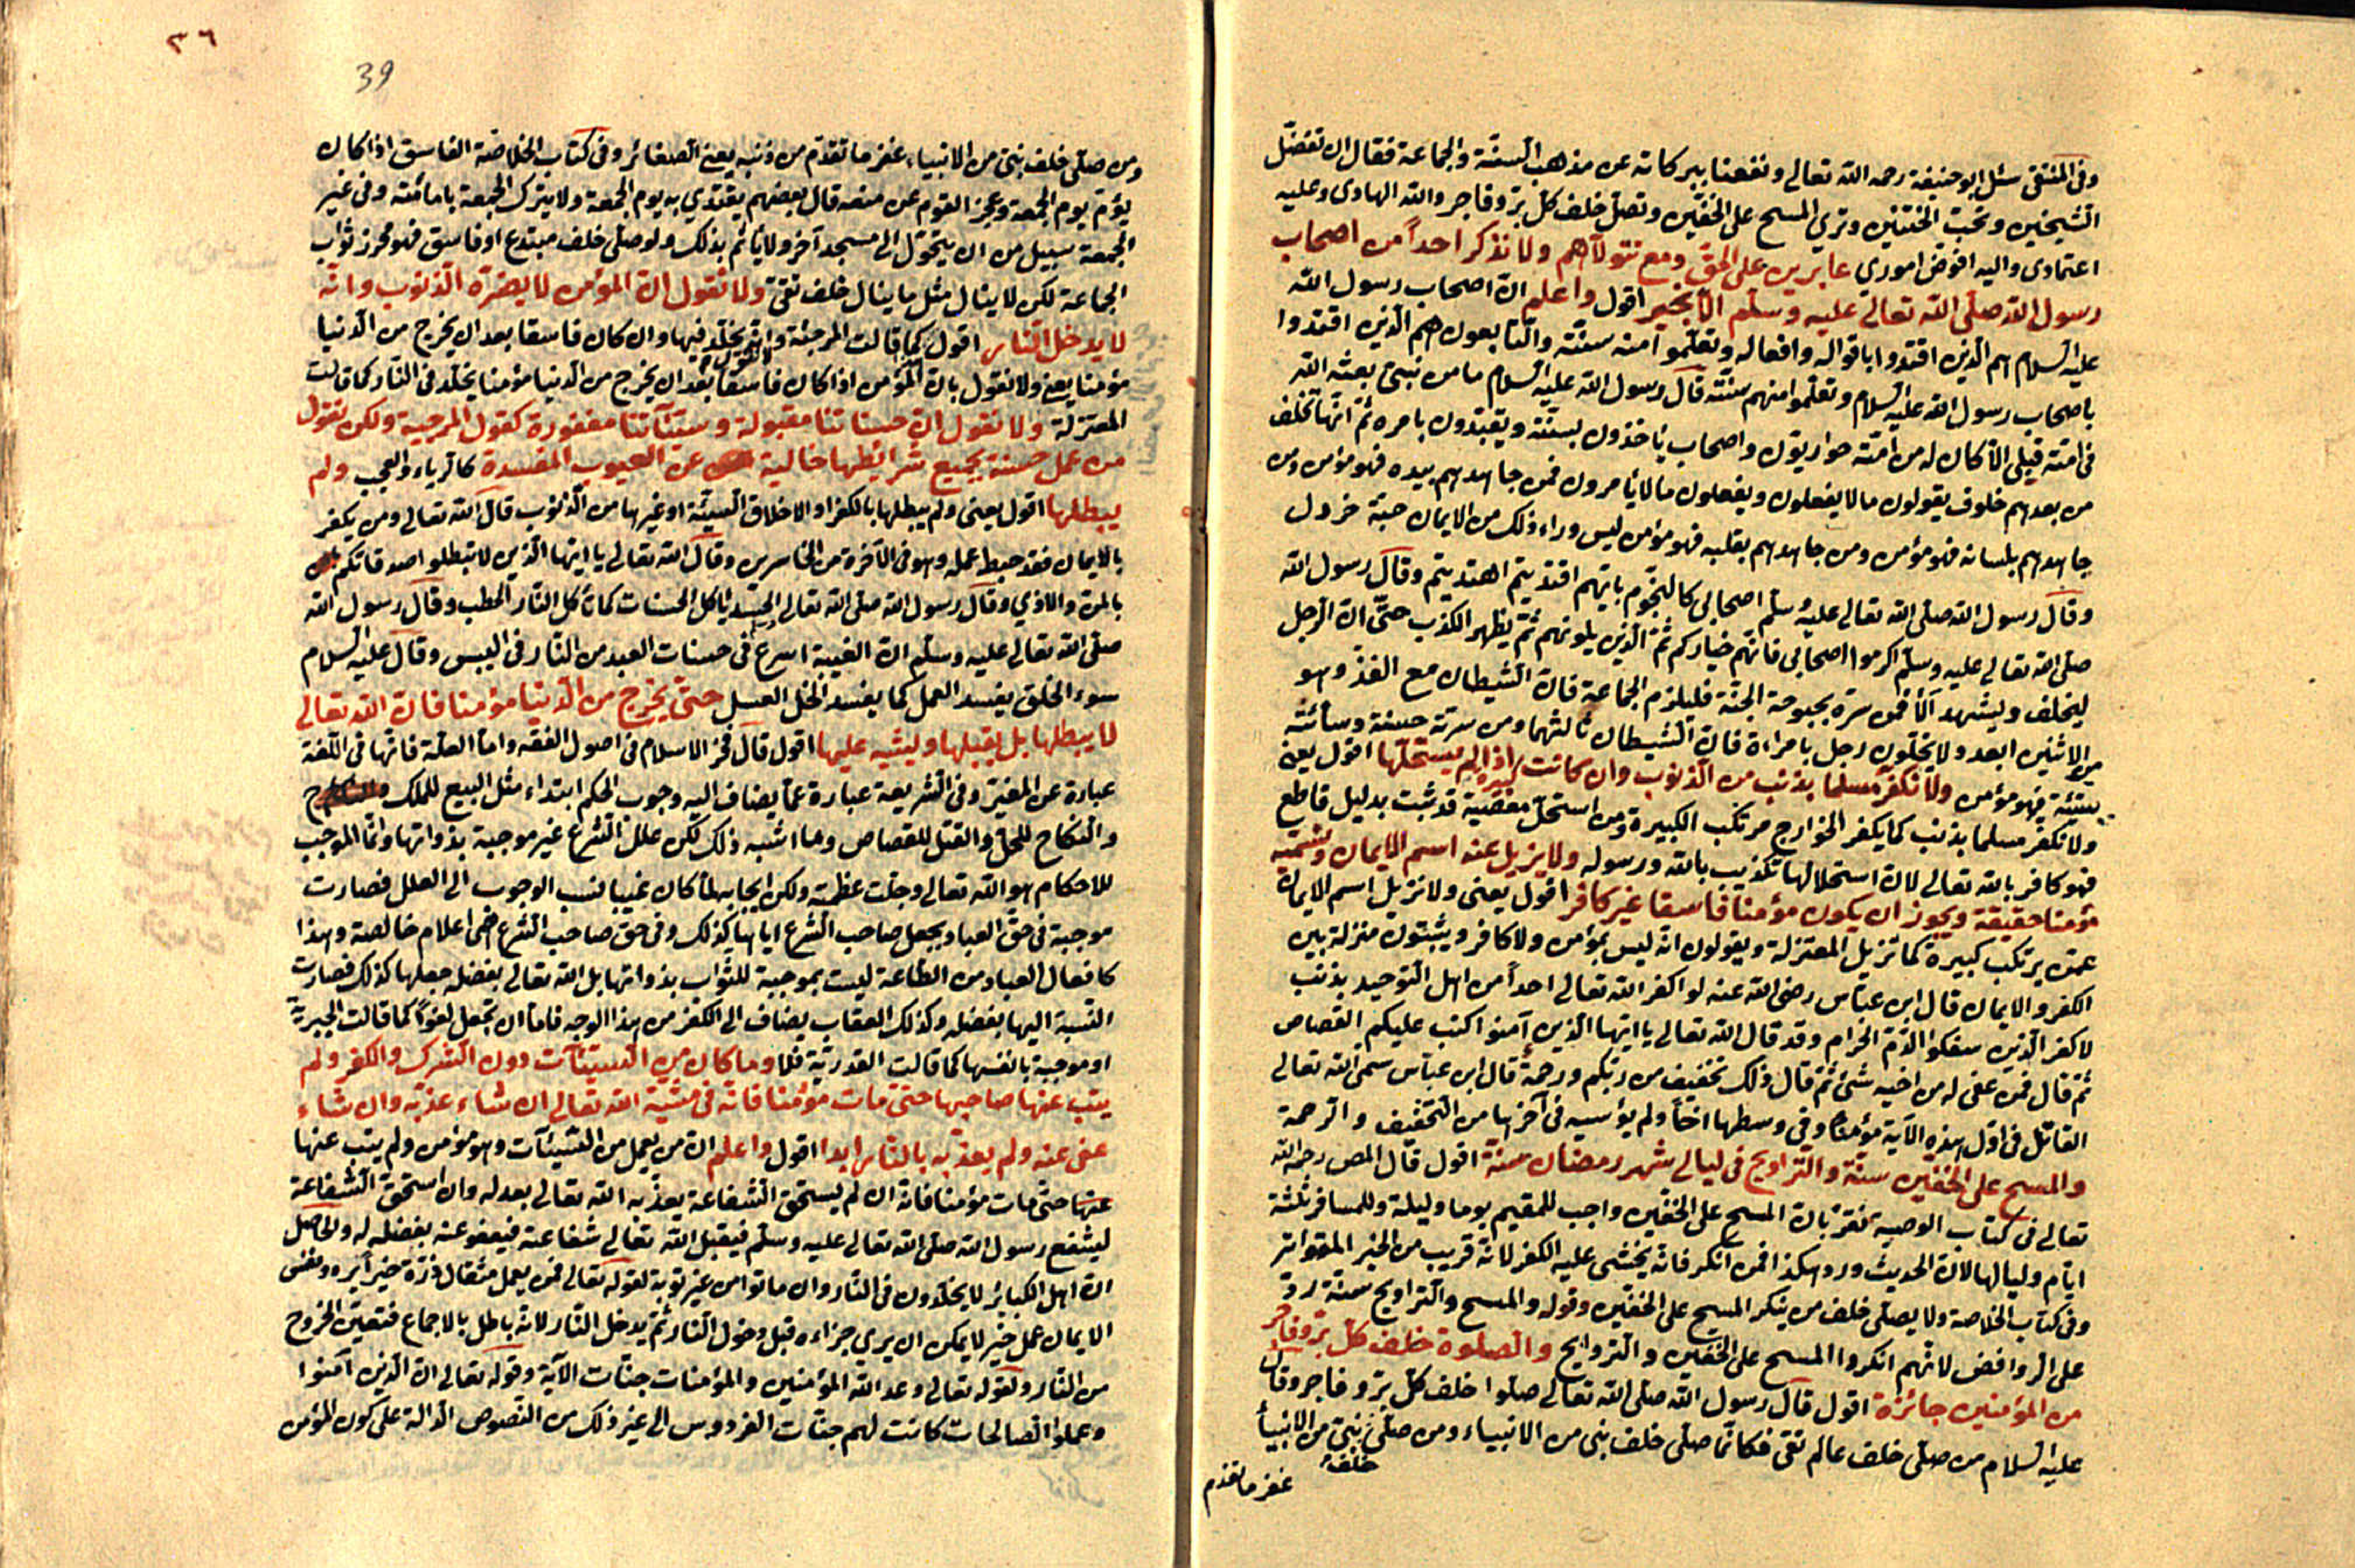 وفى المنتقى سئل ابو حنيفة رحمه الله تعالى ونفعنا ببركاته عن مذهب السنة والجماعة فقال ان تفضل
الشيخين وتحب الختنين وترى المسح على الخفين وتصلى خلف كل بر وفاجر والله الهادى وعليه
اعتمادى واليه افوض امورى عابرين على الحق ومع نتولاهم ولا نذكر احدا من اصحاب
رسول الله صلى الله تعالى عليه وسلم الا بخير اقول واعلم ان اصحاب رسول الله
عليه السلام هم الذين اقتدوا باقواله وافعاله وتعلموا منه سنته والتابعون هم الذين اقتدوا
باصحاب رسول الله عليه السلام وتعلموا منهم سنته قال رسول الله عليه السلام ما من نبى بعثه الله
فى امته قبلى الا كان له من امته حواريون واصحاب ياخذون بسنته ويقتدون بامره ثم انها تخلف
من بعدهم خلوف يقولون ما لا يفعلون ويفعلون ما لا يأمرون فمن جاهدهم بيده فهو مؤمن ومن
جاهدهم بلسانه فهو مؤمن ومن جاهدهم بقلبه فهو مؤمن ليس وراء ذلك من الايمان حبة خردل
وقال رسول الله صلى الله تعالى عليه وسلم اصحابى كالنجوم بايهم اقتديتم اهتديتم وقال رسول الله
صلى الله تعالى عليه وسلم اكرموا اصحابى فانهم خياركم ثم الذين يلونهم ثم يظهر الكذب حتى ان الرجل
ليحلف ويشهد الا فمن سره بحبوحة الجنة فليلزم الجماعة فان الشيطان مع الفذ وهو
من الاثنين ابعد ولا يخلون رجل بامراة فان الشيطان ثالثهما ومن سرته حسنة وسائته
سيئة فهو مؤمن ولا نكفر مسلما بذنب من الذنوب وان كانت كبيرة اذا لم يستحلها اقول يعنى
ولا نكفر مسلما بذنب كما يكفر الخوارج مرتكب الكبيرة ومن استحل معصية قد ثبت بدليل قاطع
فهو كافر بالله تعالى لان استحلالها تكذيب بالله ورسوله ولا يزيل عنه اسم الايمان ونسميه
مؤمنا حقيقة ويجوز ان يكون مؤمنا فاسقا غير كافر اقول يعنى ولا نزيل اسم الايمان
عمن يرتكب كبيرة كما تزيل المعتزلة ويقولون انه ليس بمؤمن ولا كافر ويثبتون منزلة بين
الكفر والايمان قال ابن عباس رضى الله عنه لو اكفر الله تعالى احدا من اهل التوحيد بذنب
لاكفر الذين سفكوا الدم الحرام وقد قال الله تعالى يا ايها الذين آمنوا كتب عليكم القصاص
ثم قال فمن عفى له من اخيه شئ ثم قال ذلك تخفيف من ربكم ورحمة قال ابن عباس سمى الله تعالى
القاتل فى اول هذه الآية مؤمنا وفى وسطها اخا ولم يؤسيه فى آخرها من التخفيف والرحمة
والمسح على الخفين سنة والتراويح فى ليالى شهر رمضان سنة اقول قال المص رحمه الله
تعالى فى كتاب الوصية نقر بان المسح على الخفين واجب للمقيم يوما وليلة وللمسافر ثلثة
ايام ولياليها لان الحديث ورد هكذا فمن انكر فانه يخشى عليه الكفر لانه قريب من الخبر المتواتر
وفى كتاب الخلاصة ولا يصلى خلف من ينكر المسح على الخفين وقوله والمسح والتراويح سنة رد
على الروافض لانهم انكروا المسح على الخفين والتروايح والصلوة خلف كل بر وفاجر
من المؤمنين جائزة اقول قال رسول الله صلى الله تعالى صلوا خلف كل بر وفاجر وقال
عليه السلام من صلى خلف عالم تقى فكانما صلى خلف نبى من الانبياء ومن صلى خلف نبى من الانبيأ
غفر ما تقدم
٣٦
39
ومن صلى خلف نبى من الانبياء غفر ما تقدم من ذنبه يعنى الصغائر وفى كتاب الخلاصة الفاسق اذا كان
يؤم يوم الجمعة وعجز القوم عن منعه قال بعضهم يقتدى به يوم الجمعة ولا يترك الجمعة بامامته وفى غير
الجمعة سبيل من ان يتحول الى مسجد آخر ولا يأثم بذلك ولو صلى خلف مبتدع او فاسق فهو محرز ثواب
الجماعة لكن لا ينال مثل ما ينال خلف تقى ولا نقول ان المؤمن لا يضره الذنوب وانه
لا يدخل النار اقول كما قالت المرجئة وانه يخلد فيها وان كان فاسقا بعد ان يخرج من الدنيا
مؤمنا يعنى ولا نقول بان المؤمن اذا كان فاسقا بعد ان يخرج من الدنيا مؤمنا يخلد فى النار كما قالت
المعتزلة ولا نقول ان حسناتنا مقبولة وسيئاتنا مغفورة كقول المرجية ولكن نقول
من عمل حسنة بجميع شرائطها خالية عن العيوب المفسدة كالرياء والعجب ولم
يبطلها اقول يعنى ولم يبطلها بالكفر او الاخلاق السيئة او غيرها من الذنوب قال الله تعالى ومن يكفر
بالايمان فقد حبط عمله وهو فى الآخرة من الخاسرين وقال الله تعالى يا ايها الذين لا تبطلوا صدقاتكم
بالمن والاذى وقال رسول الله صلى الله تعالى الحسد يأكل الحسنات كما تأكل النار الحطب وقال رسول الله
صلى الله تعالى عليه وسلم ان الغيبة اسرع فى حسنات العبد من النار فى اليبس وقال عليه السلام
سوء الخلق يفسد العمل كما يفسد الخل العسل حتى يخرج من الدنيا مؤمنا فان الله تعالى
لا يبطلها بل يقبلها ويثيبه عليها اقول قال فخر الاسلام فى اصول الفقه واما العلة فانها فى اللغة
عبارة عن المغير وفى الشريعة عبارة عما يضاف اليه وجوب الحكم ابتداء مثل البيع للملك
والنكاح للحل والقتل للقصاص وما اشبه ذلك لكن علل الشرع غير موجبة بذواتها وانما الموجب
للاحكام هو الله تعالى وجلت عظمته ولكن ايجابه لما كان غيبا نسب الوجوب الى العلل فصارت
موجبة فى حق العباد بجعل صاحب الشرع اياها كذلك وفى حق صاحب الشرع هى اعلام خالصة وهذا
كافعال العباد من الطاعة ليست بموجبة للثواب بذواتها بل الله تعالى بفضله جعلها كذلك فصارت
النسبة اليها بفضله وكذلك العقاب يضاف الى الكفر من هذا الوجه فاما ان تجعل لغوا كما قالت الجبرية
او موجبة بانفسها كما قالت القدرية فلا وما كان من السيئات دون الشرك والكفر ولم
يتب عنها صاحبها حتى مات مؤمنا فانه فى مشية الله تعالى ان شاء عذبه وان شاء
عفى عنه ولم يعذبه بالنار ابدا اقول واعلم ان من يعمل من السيئات وهو مؤمن ولم يتب عنها
عنها حتى مات مؤمنا فانه ان لم يستحق الشفاعة يعذبه الله تعالى بعدله وان استحق الشفاعة
ليشفع رسول الله صلى الله تعالى عليه وسلم فيقبل الله تعالى شفاعته فيعفو عنه بفضله له والحاصل
ان اهل الكبائر لا يخلدون فى النار وان ماتوا من غير توبة لقوله تعالى فمن يعمل مثقال ذرة خيرا يره ونفس
الايمان عمل خير لا يمكن ان يرى جزاءه قبل دخول النار ثم يدخل النار لانه باطل بالاجماع فتعين الخروج
من النار ولقوله تعالى وعد الله المؤمنين والمؤمنات جنات الآية وقوله تعالى ان الذين آمنوا
وعملوا الصالحات كانت لهم جنات الفردوس الى غير ذلك من النصوص الدالة على كون المؤمن